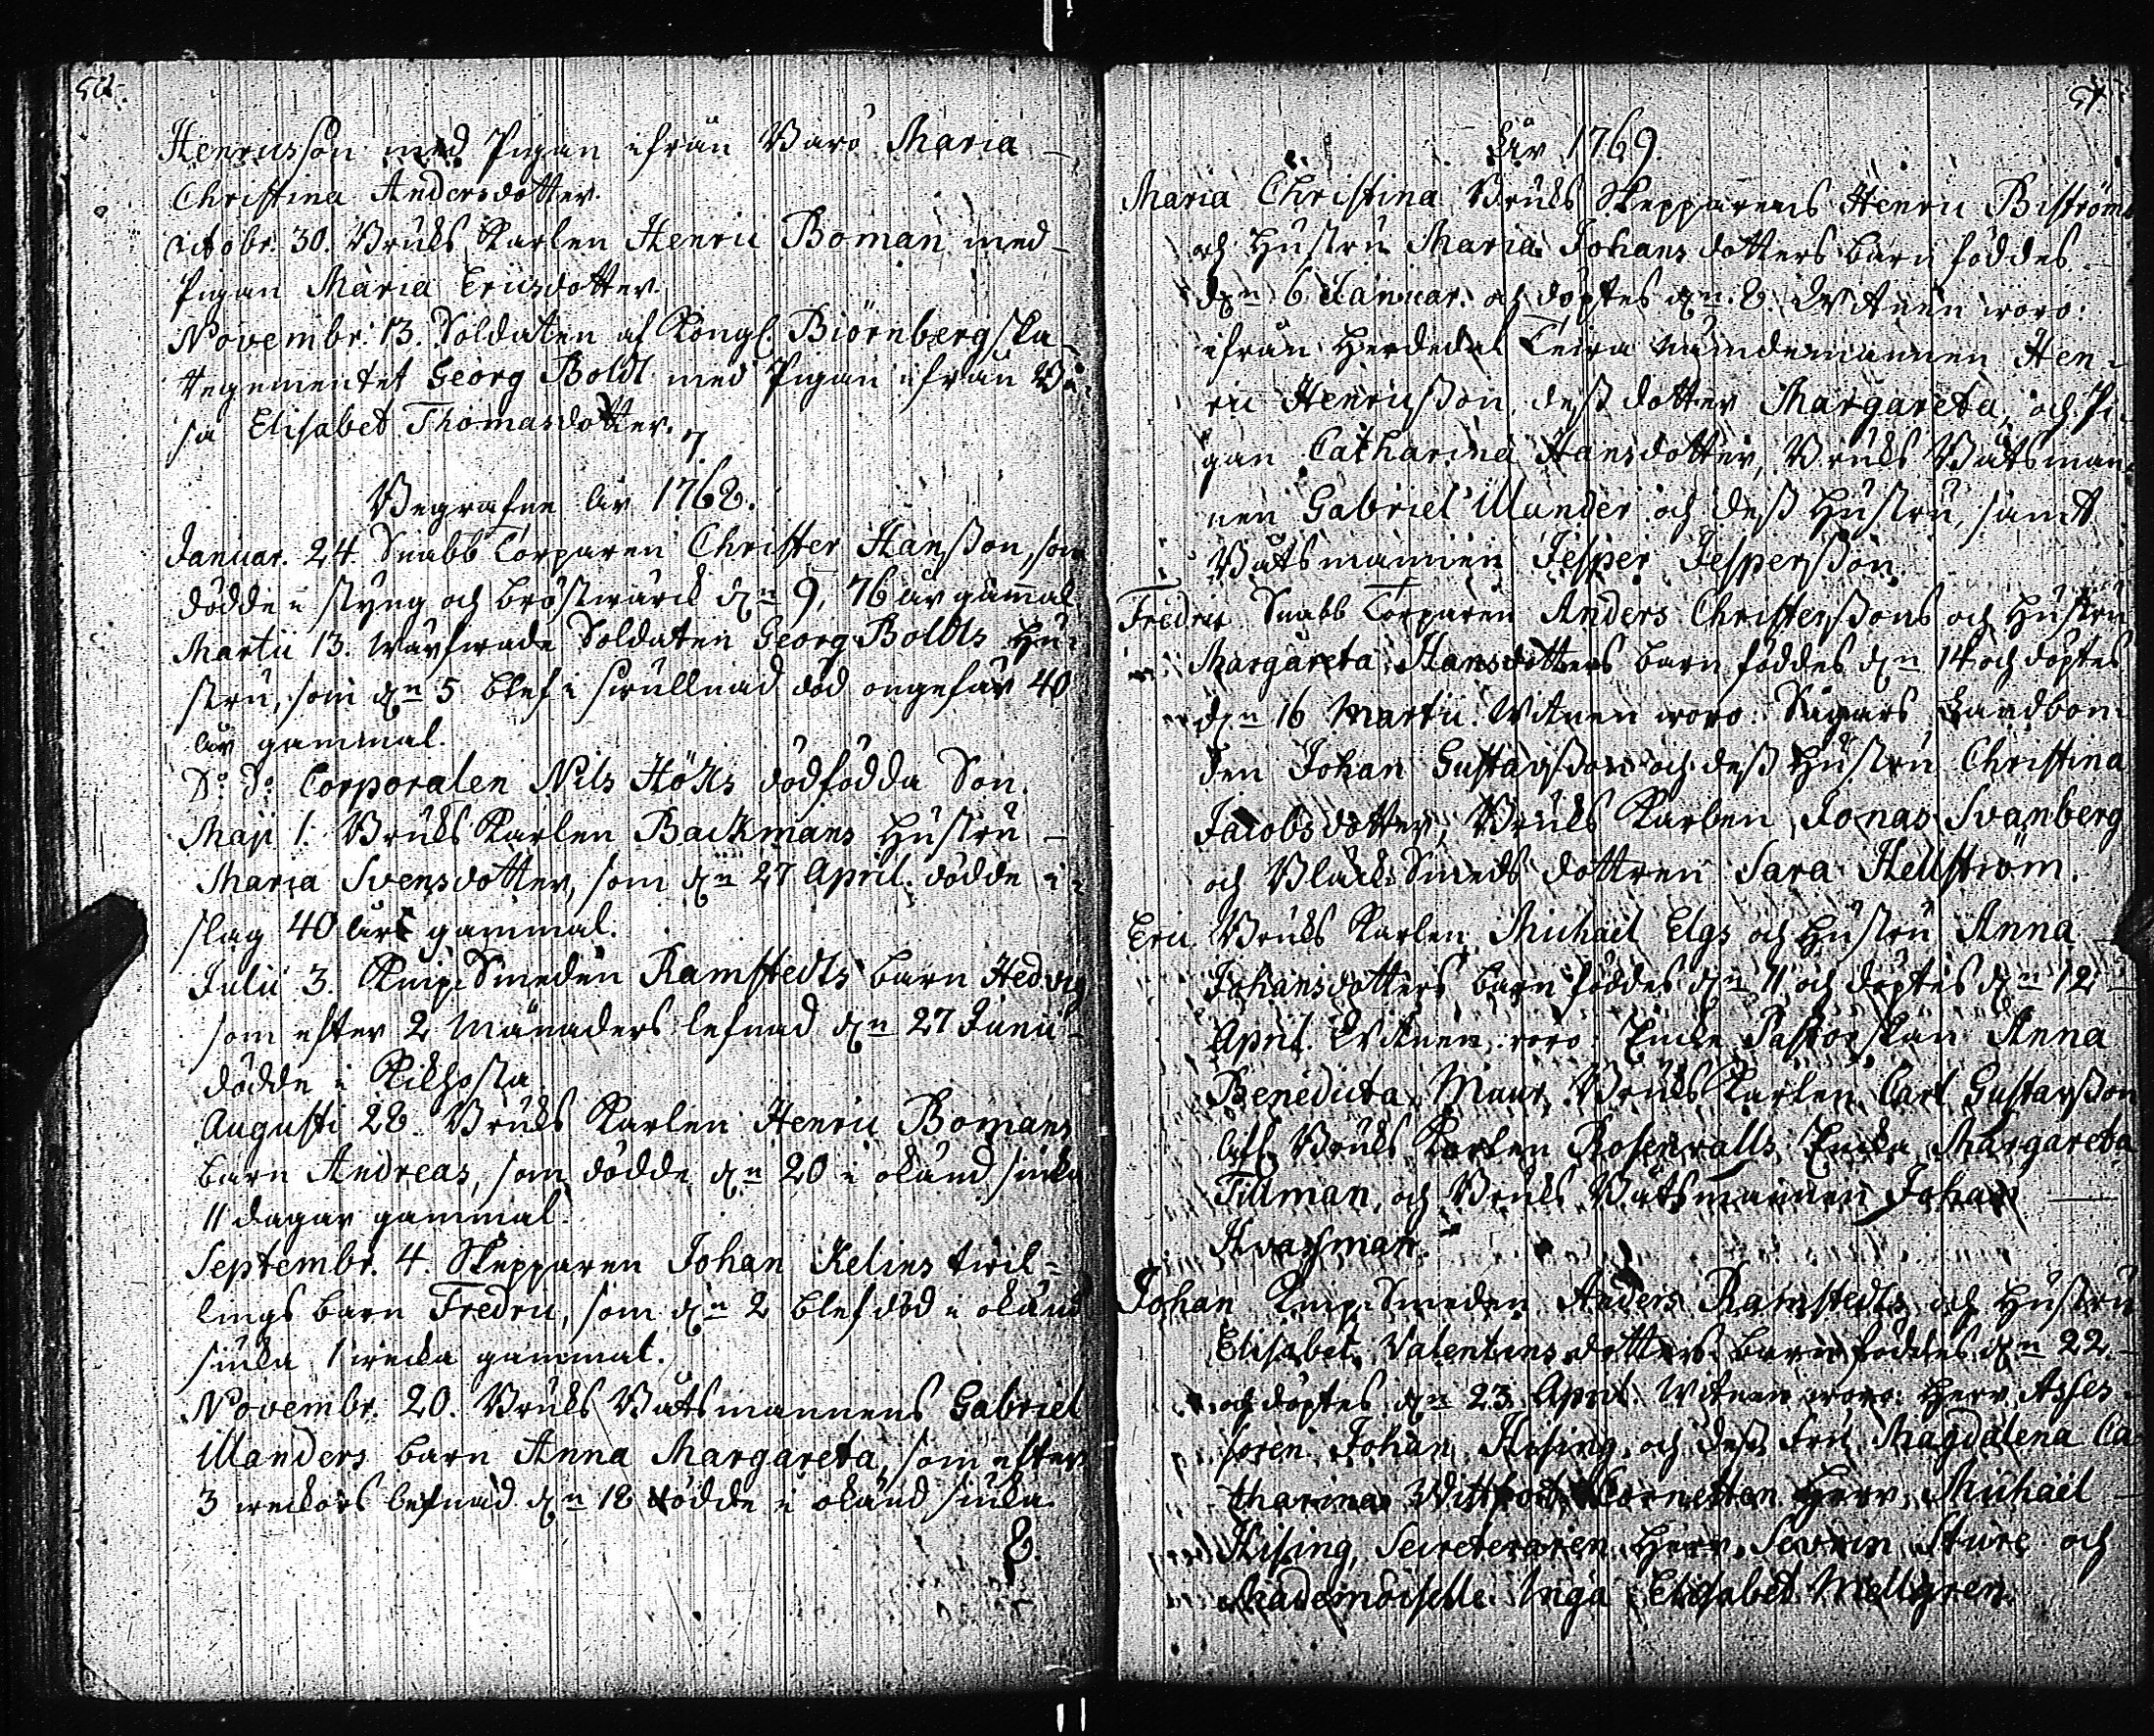 56.
Henricsson med Pigan ifrån Warö Maria
Christina Andersdotter.
Octobr. 30. Bruks Karlen Henric Boman med
Pigan Maria Ericsdotter.
Novembr. 13. Soldaten af Kongl. Biörnbergska
Regementet Georg Boldt med Pigan ifrån Wi-
sa Elisabet Thomasdotter.
7.
Begrafne åhr 1768.
Januar. 24. Snabb Torparen Christer Hansson, som
dödde i styng och bröstwärck d:n 9, 76 åhr gam̄al.
Martii 13. Wärfwade Soldaten Georg Boldts Hu-
stru, som d:n 5 blef i swullnad död ongefär 40
åhr gammal.
D:o D:o Corporalen Nils Höks dödfödda Son.
Maji 1. Bruks Karlen Backmans Hustru
Maria Svensdotter, som d:n 27 April. dödde i
slag 40 åhrs gammal.
Julii 3. Knip-Smeden Ramstedts barn Hedvig
som efter 2 Månaders lefnad d:n 27 Junii
dödde i Kikhosta
Augusti 28. Bruks Karlen Henric Bomans
barn Andreas, som dödde d:n 20 i okänd siuka
11 dagar gammal.
Septembr. 4. Skepparen Johan Kelins twil-
lings barn Fredric, som d:n 2 blef död i okänd
siuka 1 wecka gammal.
Novembr. 20. Bruks Båtsmannens Gabriel
Ulanders barn Anna Margareta, som efter
3 weckors lefnad d:n 18 dödde i okänd siuka.
8.
åhr 1769.
Maria Christina Bruks Skepparens Henric Biströms
och Hustru Maria Johans dotters barn föddes
d:n 6 Januar. och döptes d:n 8. Witnen woro:
ifrån Herdedal Teira Nämdemannen Hen-
ric Henricsson dess dotter Margareta, och Pi-
gan Catharina Hansdotter, Bruks Båtsman-
nen Gabriel Ulander och dess Hustru, samt
Båtsmannen Jesper Jespersson.
Fredric Snabb Torparen Anders Christerssons och Hustru
Margareta Hansdotters barn föddes d:n 14 och döptes
d:n 16 Martii. Witnen woro: Sågars Landbon-
den Johan Gustavsson och dess Hustru Christina
Jacobsdotter, Bruks Karlen Jonas Svanberg
och Black-Smeds dottren Sara Hellström.
Eric Bruks Karlen Michaël Elgs och Hustru Anna
Johansdotters barn föddes d:n 11 och döptes d:n 12
April. Witnen woro: Encke Pastorskan Anna
Benedicta Maur, Bruks Karlen Carl Gustavsson
Bruks Karlen Rosenvalls Encka Margareta
Tillman, och Bruks Båtsmannen Johan
Kvasman.
Johan Knip-Smeden Anders Ramstedts och Hustru
Elisabet Valentins dotters barn föddes d:n 22
och döptes d:n 23 April. Witnen woro: Herr Asses-
soren Johan Hising och dess Fru Magdalena Ca-
tharina Wittfoot, Cornetten Herr Michaël
Hising, Secreteraren Herr Sevrin Sture och
Mademoiselle Inga Elisabet Mellgren.